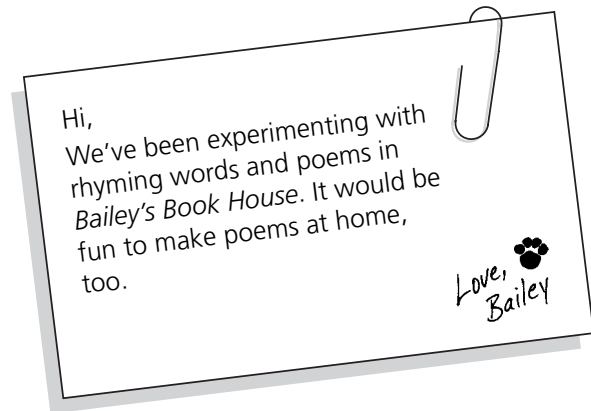 Hi,
We’ve been experimenting with
rhyming words and poems in
Bailey’s Book House. It would be
fun to make poems at home,
too.
Love,
Bailey